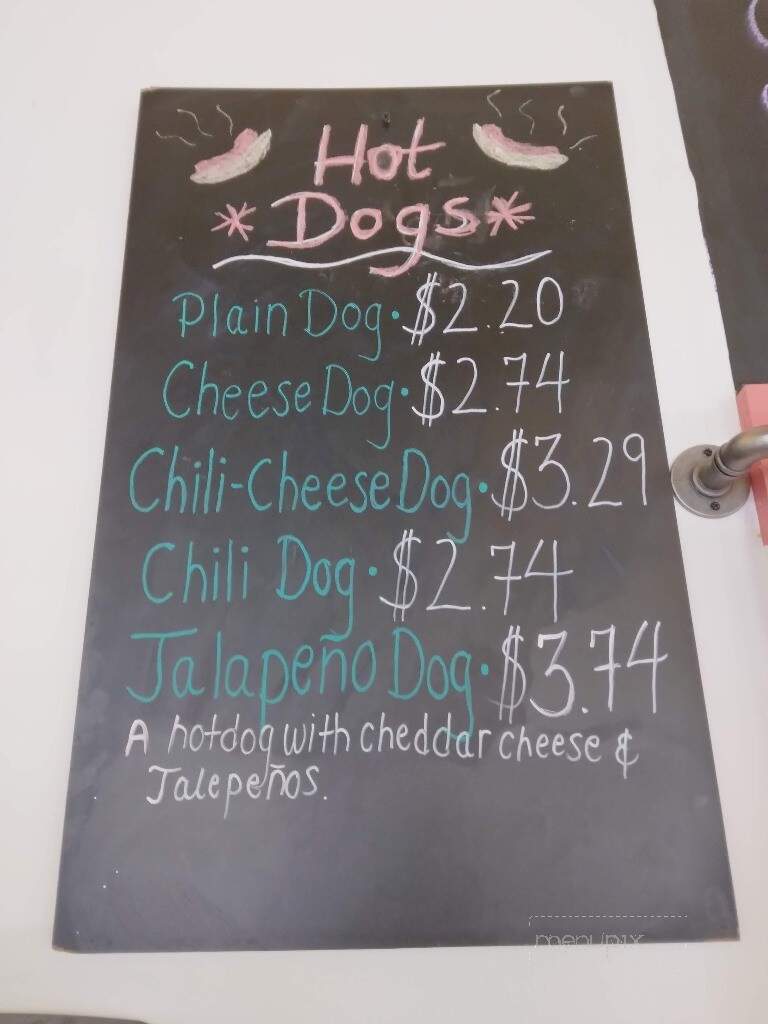 Hot
*Dogs*
Plain Dog·$2.20
Cheese Dog·$2.74
Chili-Cheese Dog·$3.29
Chili Dog·$2.74
Jalapeño Dog·$3.74
A hotdog with cheddar cheese &
Jalepeños.
menupix